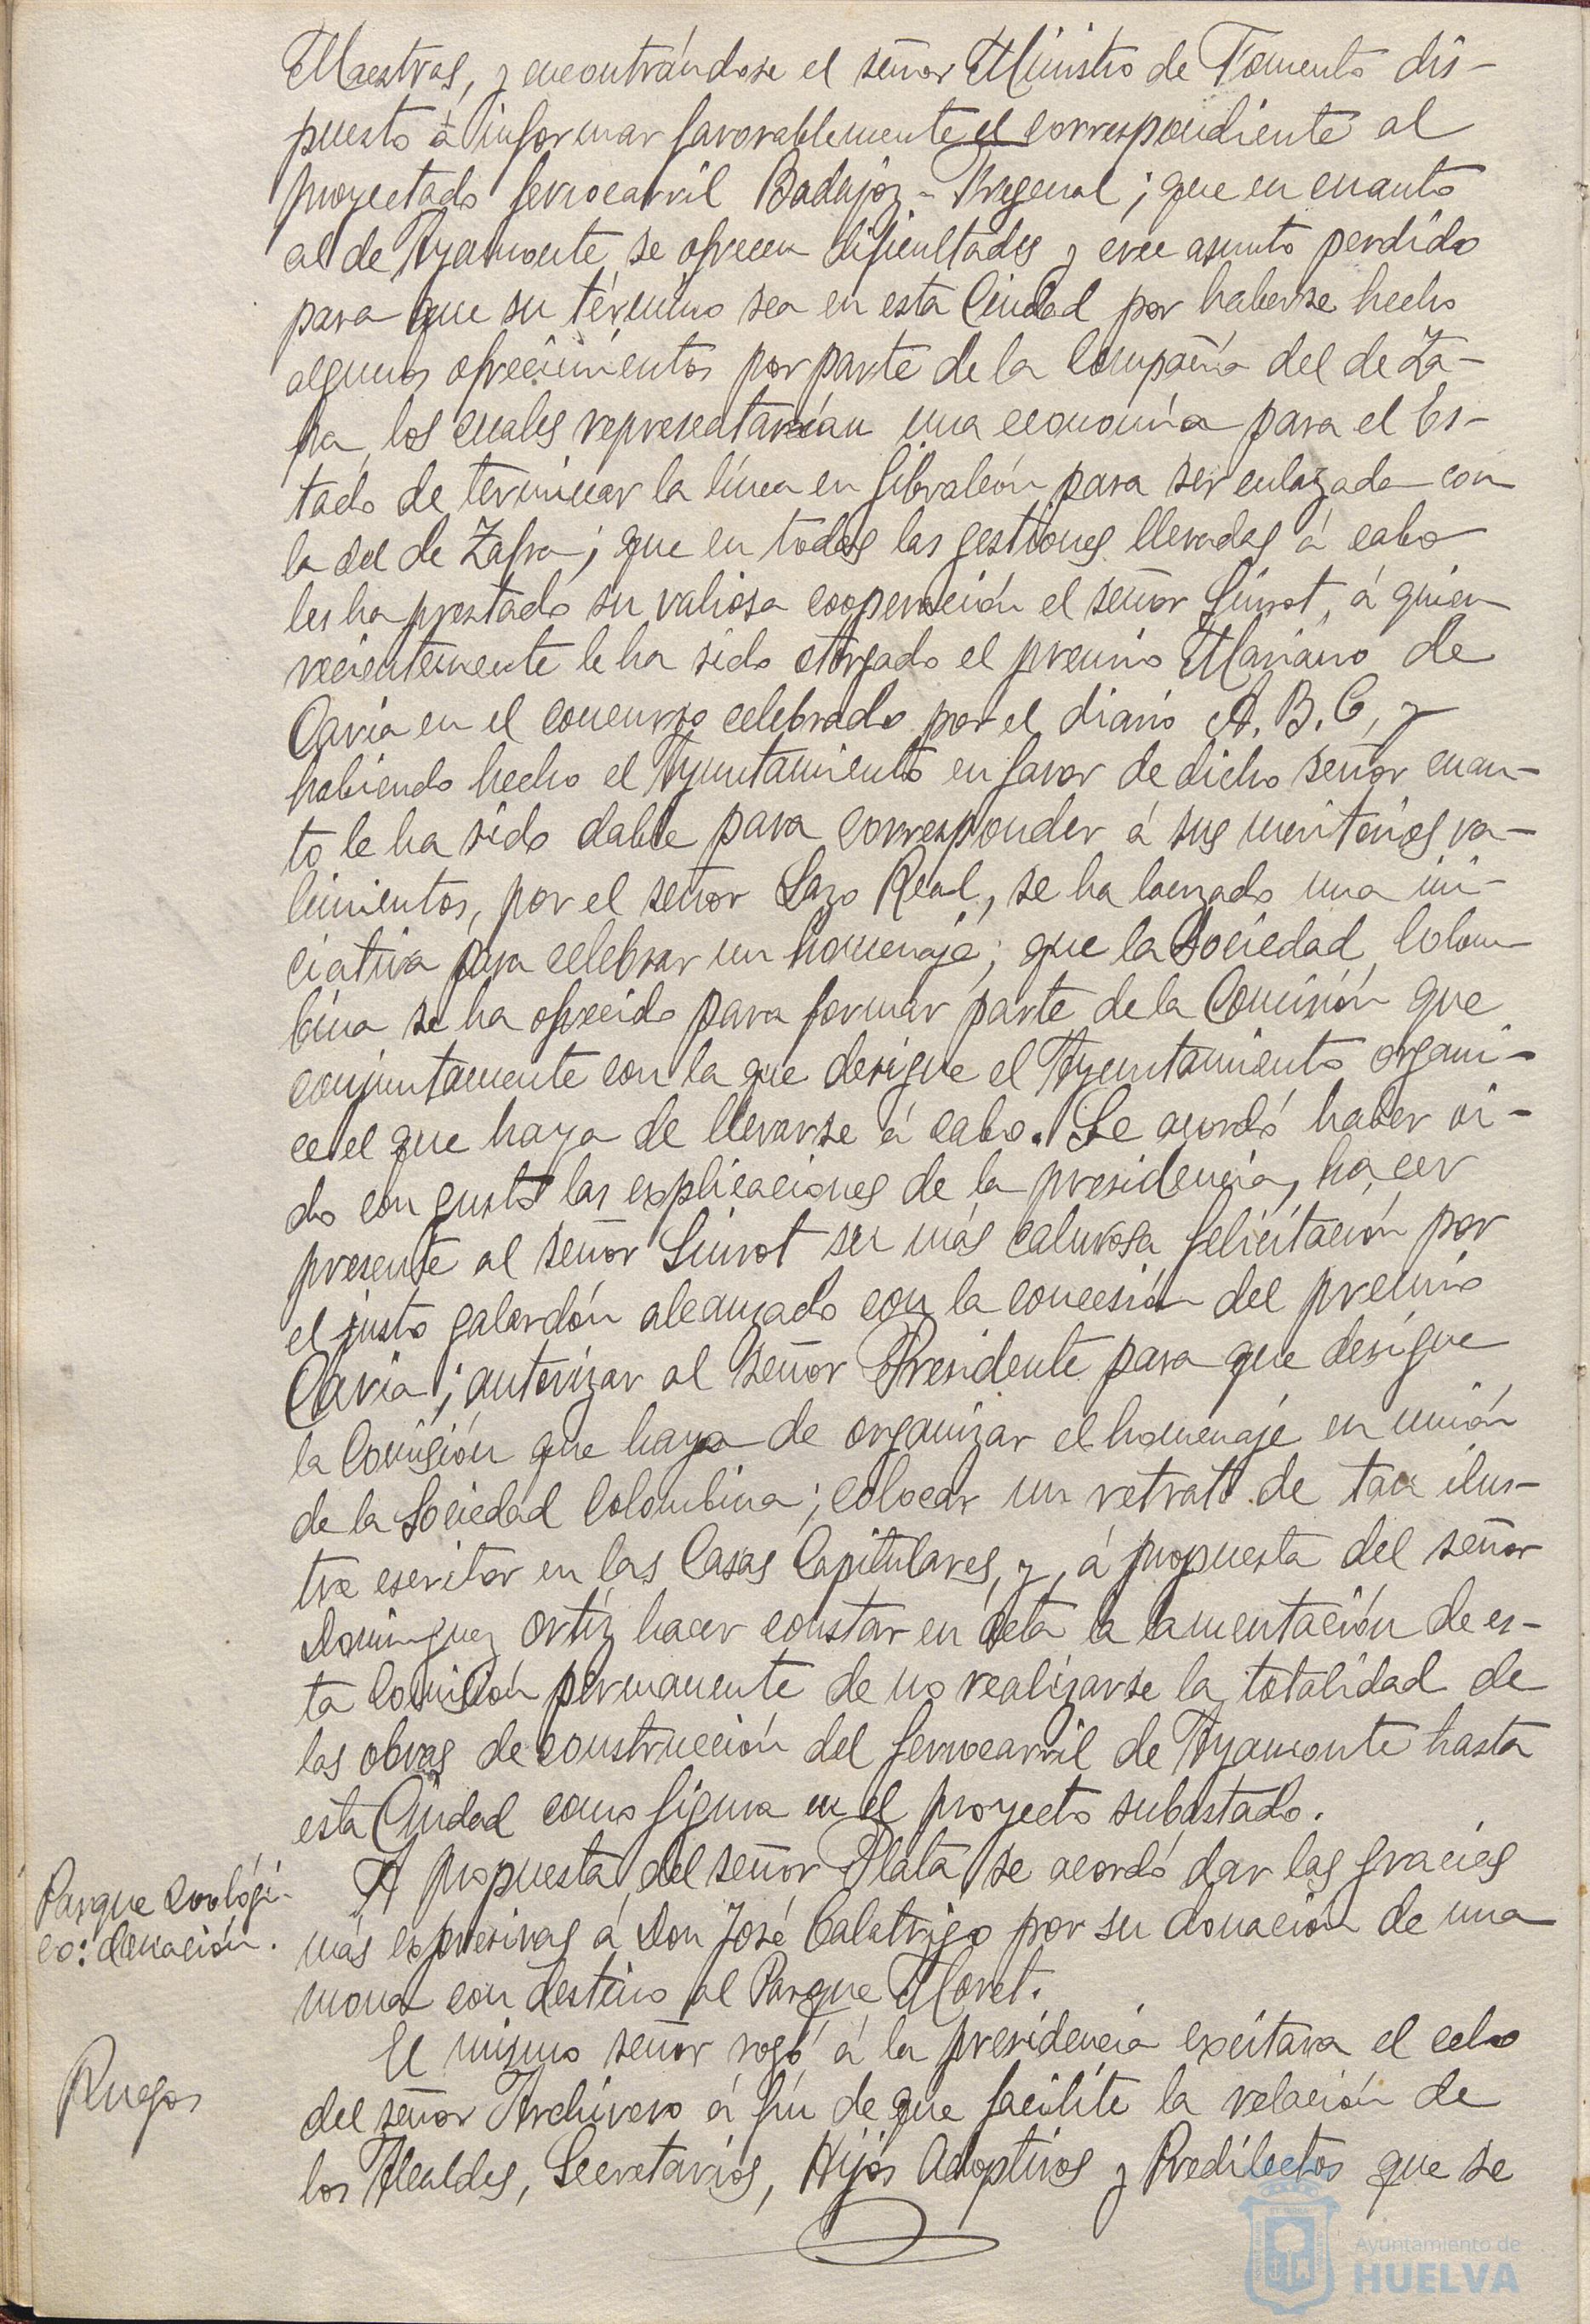 Maestras, y encontrándose el señor Ministro de Fomento dis-
puesto á informar favorablemente el correspondiente al
proyectado ferrocarril Badajoz-Fregenal; que en cuanto
al de Ayamonte se ofrecen dificultades y cree asunto perdido
para que su término sea en esta Ciudad por haberse hecho
algunos ofrecimientos por parte de la Compañía del de Za-
fra, los cuales representarían una economía para el Es-
tado de terminar la línea en Gibraleón para ser enlazada con
la del de Zafra; que en todas las gestiones llevadas á cabo
les ha prestado su valiosa cooperación el señor Siurot, á quien
recientemente le ha sido otorgado el premio Mariano de
Cavia en el concurso celebrado por el diario A.B.C, y
habiendo hecho el Ayuntamiento en favor de dicho señor cuan-
to le ha sido dable para corresponder á sus meritorios va-
limientos, por el señor Lazo Real, se ha lanzado una ini-
ciativa para celebrar un homenaje; que la Sociedad Colom-
bina se ha ofrecido para formar parte de la Comisión que
conjuntamente con la que designe el Ayuntamiento organi-
ce el que haya de llevarse á cabo. Se acordó haber oi-
do con gusto las explicaciones de la presidencia, hacer
presente al señor Siurot su más calurosa felicitación por
el justo galardón alcanzado con la concesión del premio
Cavia; autorizar al señor Presidente para que designe
la Comisión que haya de organizar el homenaje en unión
de la Sociedad Colombina; colocar un retrato de tan ilus-
tre escritor en las Casas Capitulares, y, á propuesta del señor
Dominguez Ortíz hacer constar en acta la lamentación de es-
ta Comisión permanente de no realizarse la totalidad de
las obras de construcción del ferrocarril de Ayamonte hasta
esta Ciudad como figura en el proyecto subastado.
Parque Zoológi-
co: donación.
A propuesta del señor Plata se acordó dar las gracias
más expresivas á Don José Calatrigo por su donación de una
mona con destino al Parque Moret.
Ruegos
El mismo señor rogó á la presidencia excitara el celo
del señor Archivero á fín de que facilite la relación de
los Alcaldes, Secretarios, Hijos Adoptivos y Predilectos que se
Ayuntamiento de
HUELVA